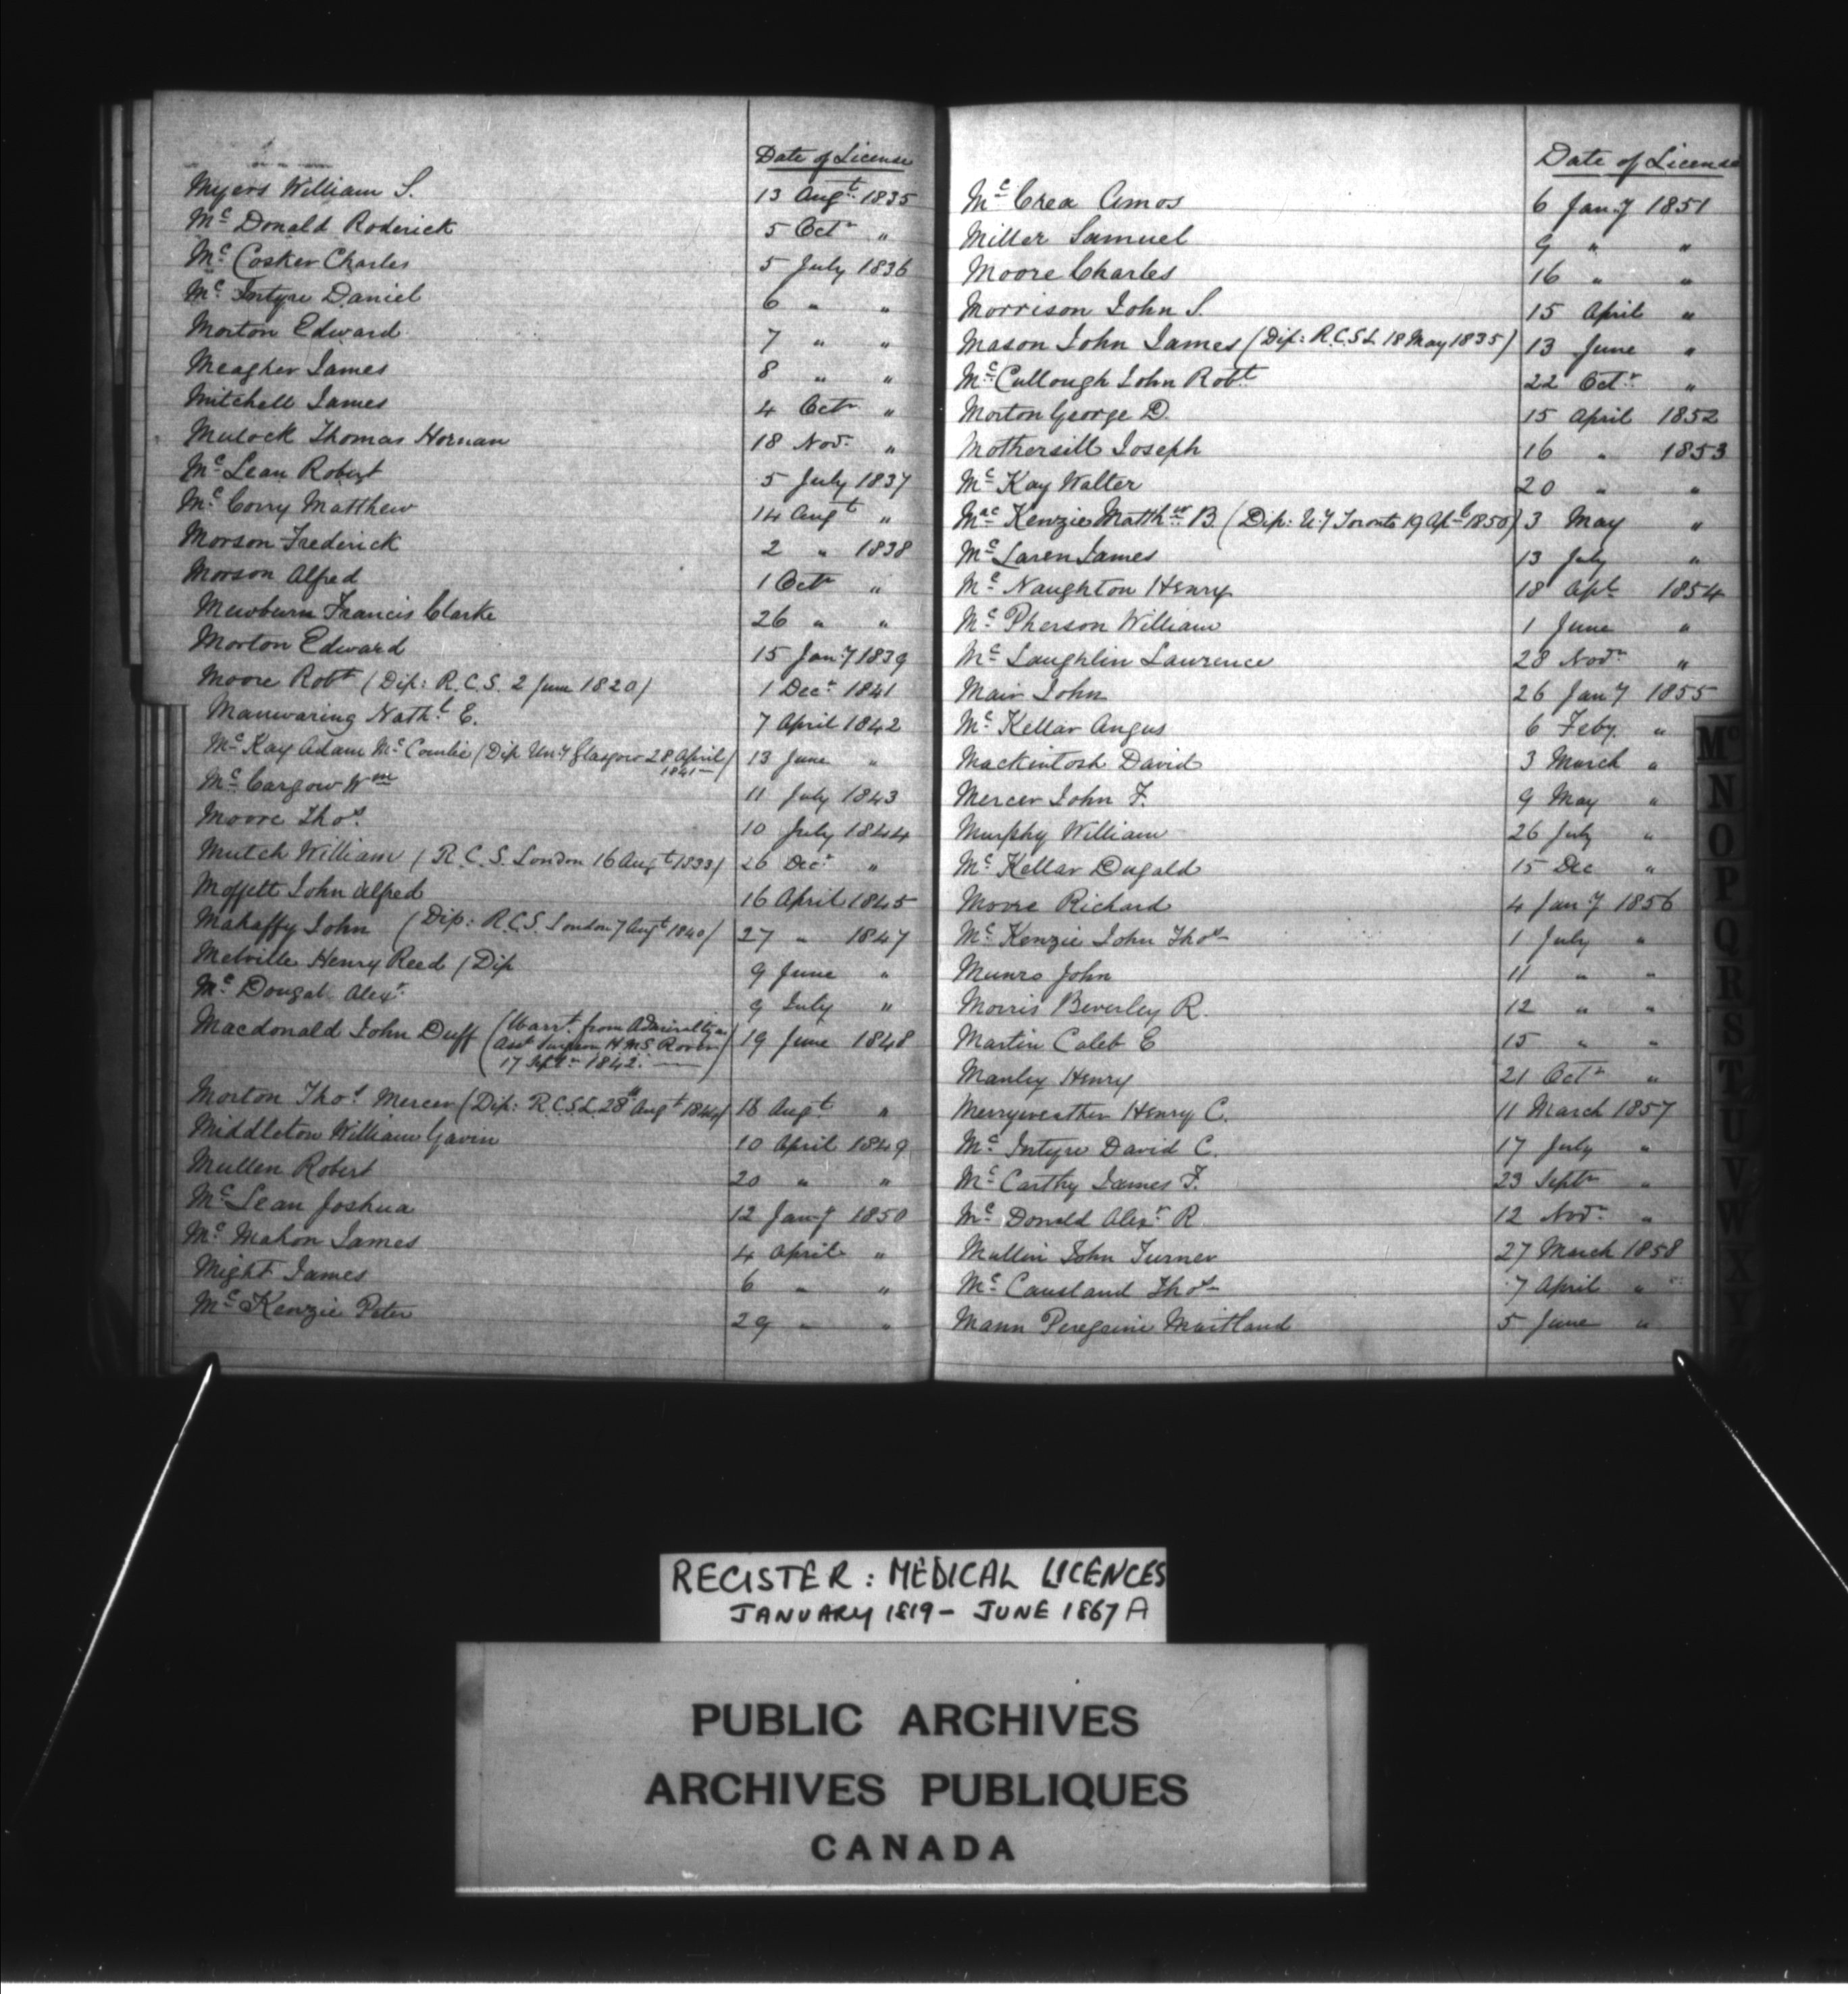 Date of License
Myers William S. 13 Augt 1835
Mc Donald Roderick 5 Octr "
Mc Cosker Charles 5 July 1836
Mc Intyre Daniel 6 " "
Morton Edward 7 " "
Meagher James 8 " "
Mitchell James 4 Octr "
Mulock Thomas Hornan 18 Novr "
Mc Lean Robert 5 July 1837
Mc Corry Matthew 14 Augt "
Morson Frederick 2 " 1838
Morson Alfred 1 Octr "
Mewburn Francis Clarke 26 " "
Morton Edward 15 Jany 1839
Moore Robt (Dip: R.C.S. 2 June 1820) 1 Decr 1841
Manwaring Nathl E. 7 April 1842
Mc Kay Adam Mc Combie (Dip Uny Glasgow 28 April 1841—) 13 June "
Mc Cargow Wm 11 July 1843
Moore Thos. 10 July 1844
Mutch William (R.C.S. London 16 Augt 1833) 26 Decr "
Moffett John Alfred 16 April 1845
Mahaffy John (Dip: R.C.S. London 7 Augt 1840) 27 " 1847
Melville Henry Reed (Dip 9 June "
Mc Dougal Alexr. 9 July "
Macdonald John Duff (Warrt. from Admiralty as
Asst Surgeon H.M.S. Rover 19 June 1848
17 Septr 1842. —)
Morton Thos Mercer (Dip: R.C.S.L. 28th Augt 1844) 18 Augt "
Middleton William Gavin 10 April 1849
Mullen Robert 20 " "
Mc Lean Joshua 12 Jany 1850
Mc Mahon James 4 April "
Might James 6 " "
Mc Kenzie Peter 29 " "
Date of License
Mc Crea Amos 6 Jany 1851
Miller Samuel 9 " "
Moore Charles 16 " "
Morrison John S. 15 April "
Mason John James (Dip: R.C.S.L 18 May 1835) 13 June "
Mc Cullough John Robt 22 Octr "
Morton George D. 15 April 1852
Mothersill Joseph 16 " 1853
Mc Kay Walter 20 " "
Mac Kenzie Matthew B. (Dip: U.y Toronto 19 Apl 1850) 3 May "
Mc Laren James 13 July "
Mc Naughton Henry 18 Apl 1854
Mc Pherson William 1 June "
Mc Laughlin Lawrence 28 Novr "
Mair John 26 Jany 1855
Mc Kellar Angus 6 Feby. "
Mackintosh David 3 March "
Mercer John F. 9 May "
Murphy William 26 July "
Mc Kellar Dugald 15 Dec "
Moore Richard 4 Jany 1856
Mc Kenzie John Thos 1 July "
Munro John 11 " "
Morris Beverley R. 12 " "
Martin Caleb E 15 " "
Manley Henry 21 Octr "
Merryweather Henry C. 11 March 1857
Mc Intyre David C. 17 July "
Mc Carthy James F. 23 Septr "
Mc Donald Alexr R. 12 Novr "
Mullin John Turner 27 March 1858
Mc Causland Thos 7 April "
Mann Peregrine Maitland 5 June "
Mc
N
O
P
Q
R
S
T
U
V
W
X
Y
Z
REGISTER: MEDICAL LICENCES
JANUARY 1819 – JUNE 1867 A
PUBLIC ARCHIVES
ARCHIVES PUBLIQUES
CANADA